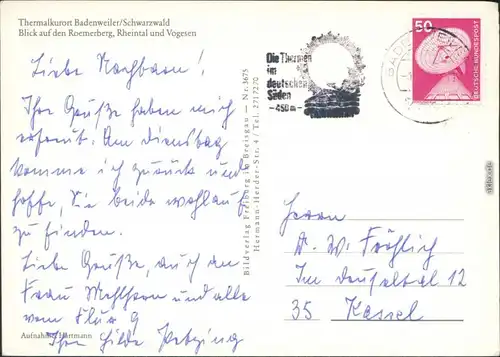 Thermalkurort Badenweiler/Schwarzwald
Blick auf den Roemerberg, Rheintal und Vogesen
Liebe Nachbarn!
Ihre Grüße haben mich
erfreut. Am Dienstag
komme ich zurück und
hoffe, Sie beide wohlauf
zu finden.
Liebe Grüße, auch an
Frau Mehlhorn und alle
vom Flur 9
Ihre Hilde
Aufnahme: Hartmann
Bildverlag Freiburg im Breisgau — Nr. 3675
Hermann-Herder-Str. 4 / Tel. 2717270
Die Thermen
im
deutschen
Süden
- 450 m -
50
DEUTSCHE BUNDESPOST
Herrn
Dr. W. Fröhlich
Im Druseltal 12
35 Kassel